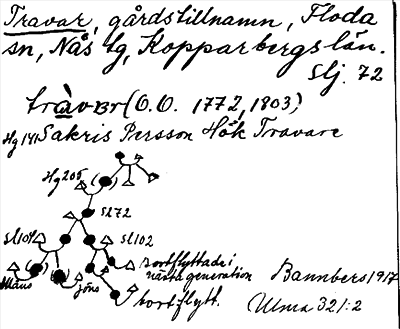 Travar, gårdstillnamn, Floda
sn, Nås tg, Kopparbergs län.
Slj. 72
(O.O. 1772, 1803)
Hg 141 Sakris Persson Hök Travare
Hg 205
Sl 72
Sl 102
bortflyttade i
nästa generation
Måns
Jöns
bortflytt.
Bannbers 1917
Ulma 321:2